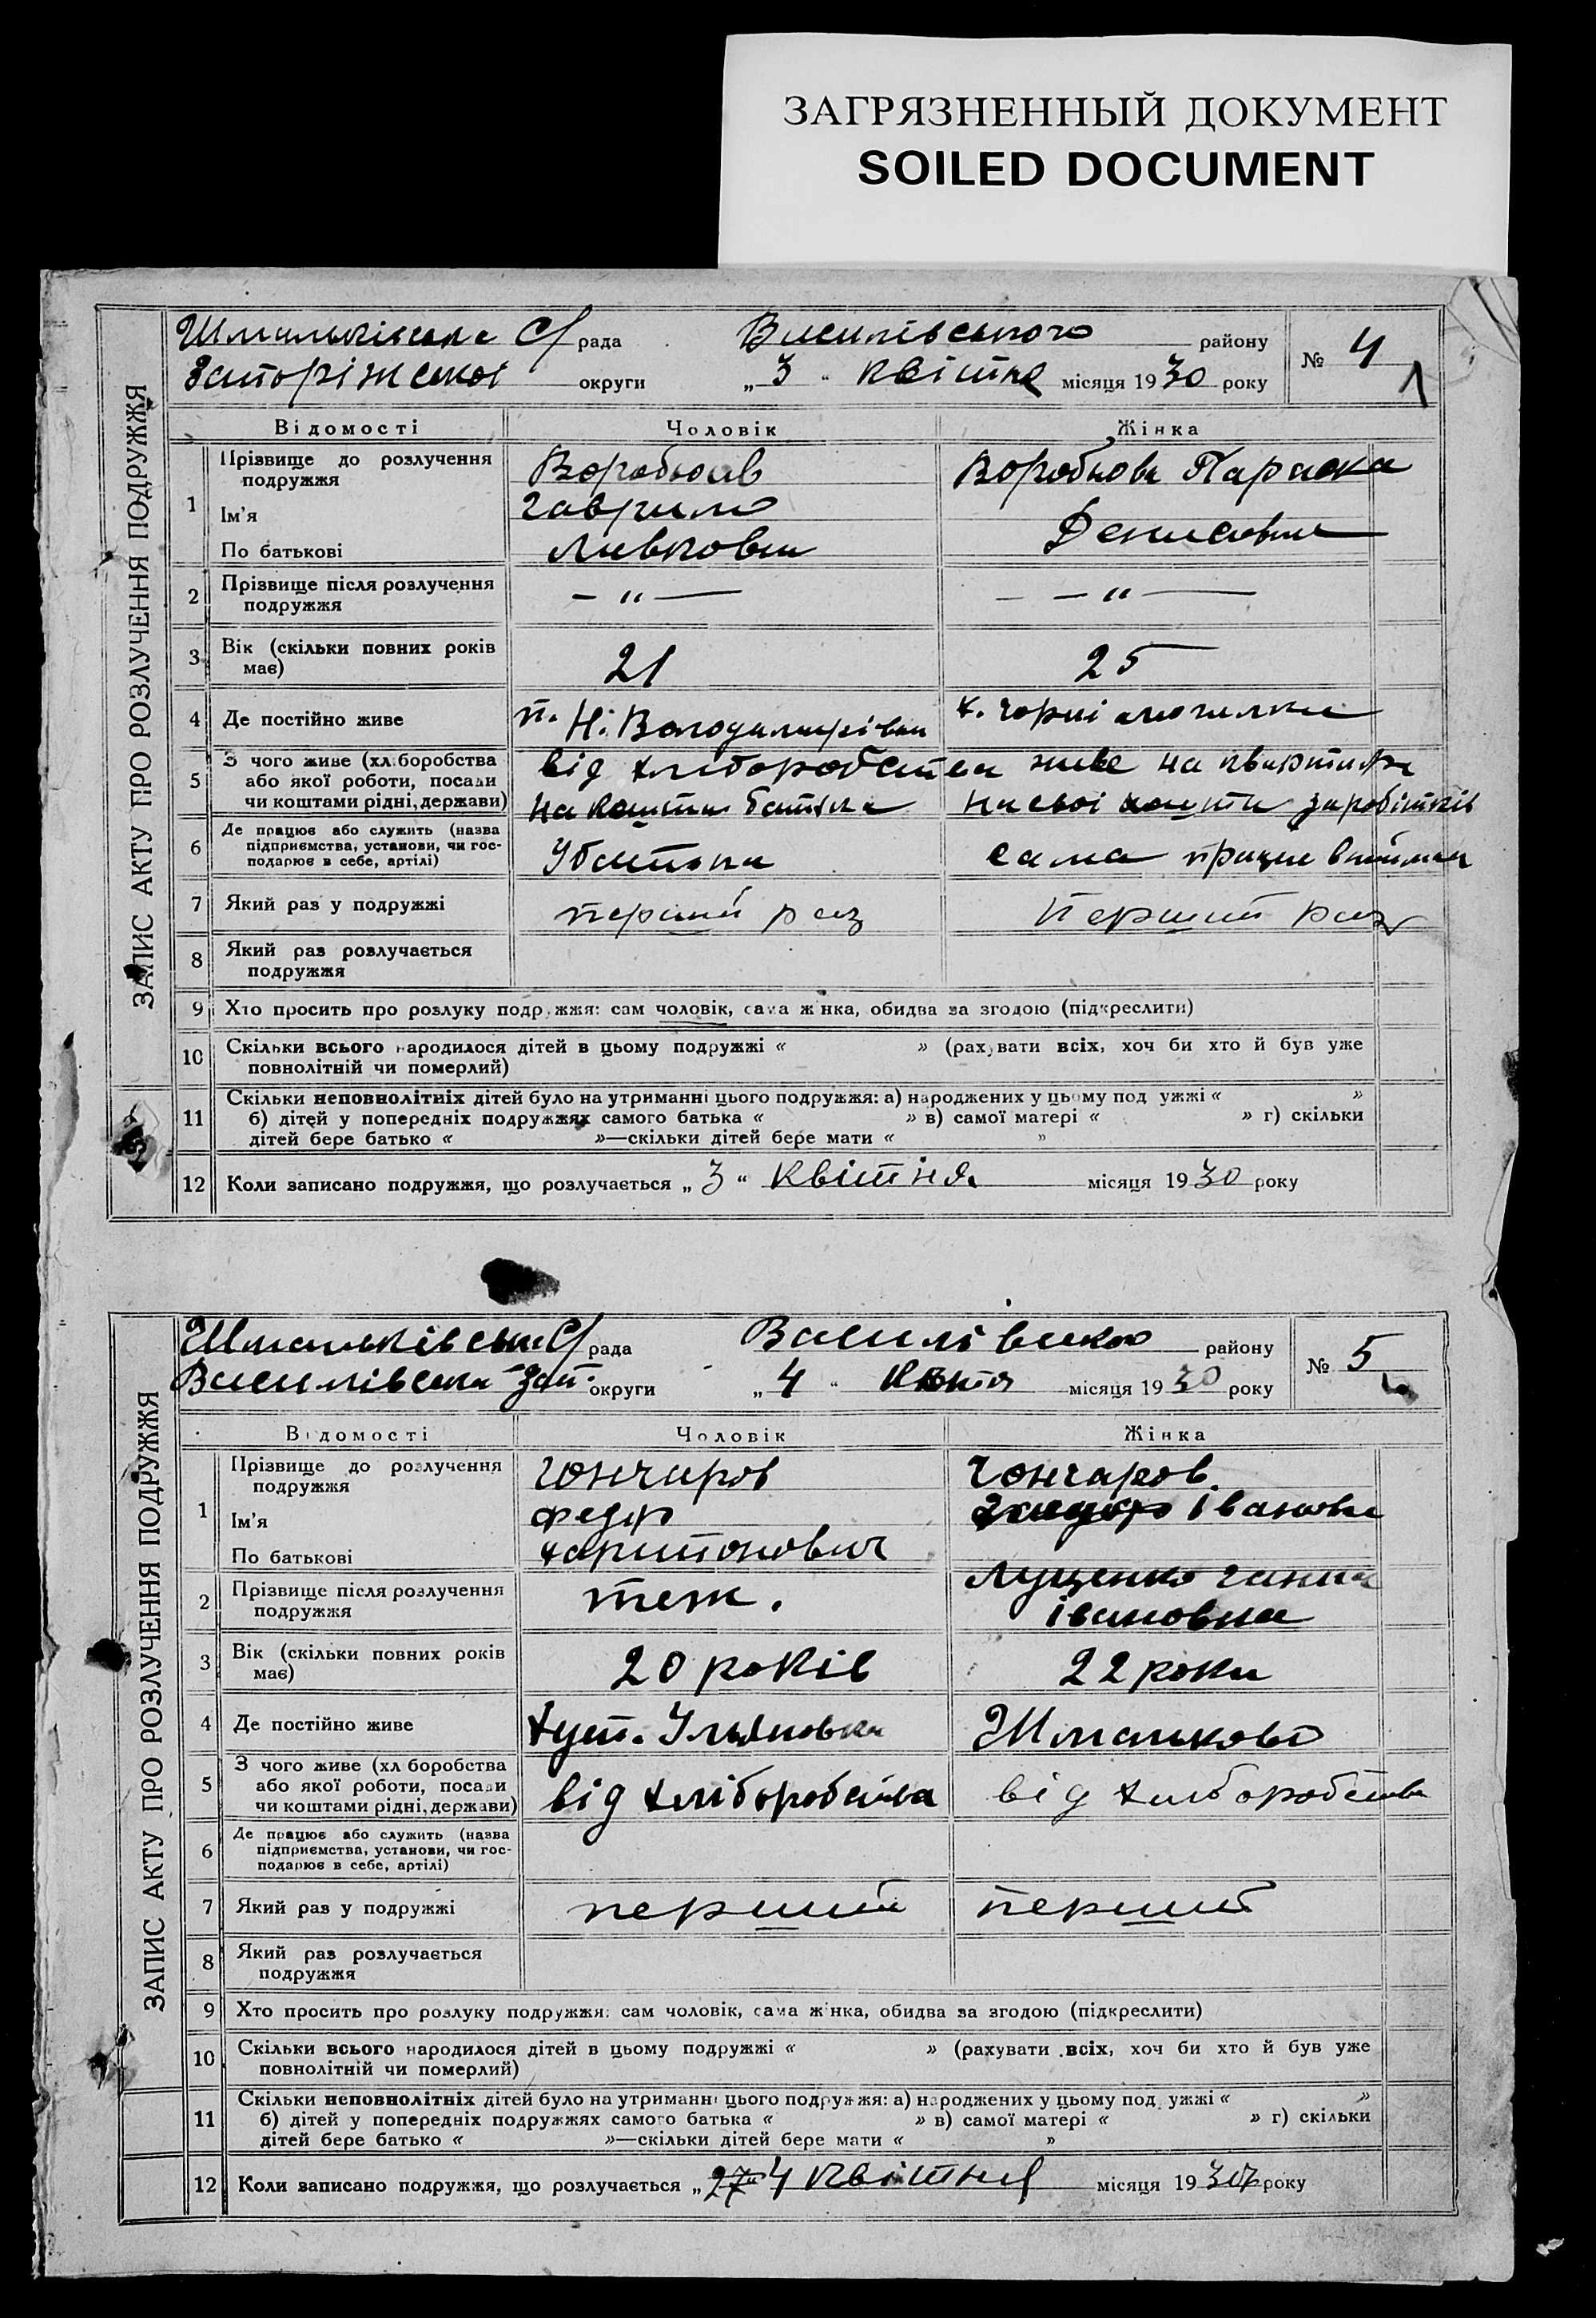 ЗАГРЯЗНЕННЫЙ ДОКУМЕНТ
SOILED DOCUMENT
ЗАПИС АКТУ ПРО РОЗЛУЧЕННЯ ПОДРУЖЖЯ
С/рада Василівського району № 4
1
Запоріжської округи „3“ квітня місяця 1930 року
Відомості Чоловік Жінка
1 Прізвище до розлучення подружжя Воробйов Воробйова Параска
Ім'я Гаврило
По батькові Левкович Денисовна
2 Прізвище після розлучення подружжя — „ — — „ —
3 Вік (скільки повних років має) 21 25
4 Де постійно живе п. Н. Володимирівка х. Чорні могилки
5 З чого живе (хліборобства або якої роботи, посади чи коштами рідні, держави) від хліборобства живе на квартирі
на кошти батька на свої кошти заробітків
6 Де працює або служить (назва підприємства, установи, чи господарює в себе, артілі) У батька сама працює
7 Який раз у подружжі перший раз Перший раз
8 Який раз розлучається подружжя
9 Хто просить про розлуку подружжя: сам чоловік, сама жінка, обидва за згодою (підкреслити)
10 Скільки всього народилося дітей в цьому подружжі « » (рахувати всіх, хоч би хто й був уже
повнолітній чи померлий)
11 Скільки неповнолітніх дітей було на утриманні цього подружжя: а) народжених у цьому подружжі « »
б) дітей у попередніх подружжях самого батька « » в) самої матері « » г) скільки
дітей бере батько « »—скільки дітей бере мати « »
12 Коли записано подружжя, що розлучається „3“ Квітня місяця 1930 року
ЗАПИС АКТУ ПРО РОЗЛУЧЕННЯ ПОДРУЖЖЯ
С/рада району № 5
Василівська Зап. округи „4“ місяця 1930 року
Відомості Чоловік Жінка
1 Прізвище до розлучення подружжя Гончаров Гончаров
Ім'я Федір Івановна
По батькові Харитонович
2 Прізвище після розлучення подружжя теж. Луценко Ганна
Івановна
3 Вік (скільки повних років має) 20 років 22 роки
4 Де постійно живе Хут. Ульяновка Шмальково
5 З чого живе (хліборобства або якої роботи, посади чи коштами рідні, держави) від хліборобства від хліборобства
6 Де працює або служить (назва підприємства, установи, чи господарює в себе, артілі)
7 Який раз у подружжі перший перший
8 Який раз розлучається подружжя
9 Хто просить про розлуку подружжя: сам чоловік, сама жінка, обидва за згодою (підкреслити)
10 Скільки всього народилося дітей в цьому подружжі « » (рахувати всіх, хоч би хто й був уже
повнолітній чи померлий)
11 Скільки неповнолітніх дітей було на утриманні цього подружжя: а) народжених у цьому подружжі « »
б) дітей у попередніх подружжях самого батька « » в) самої матері « » г) скільки
дітей бере батько « »—скільки дітей бере мати « »
12 Коли записано подружжя, що розлучається „27“ 4 Квітня місяця 1930 року